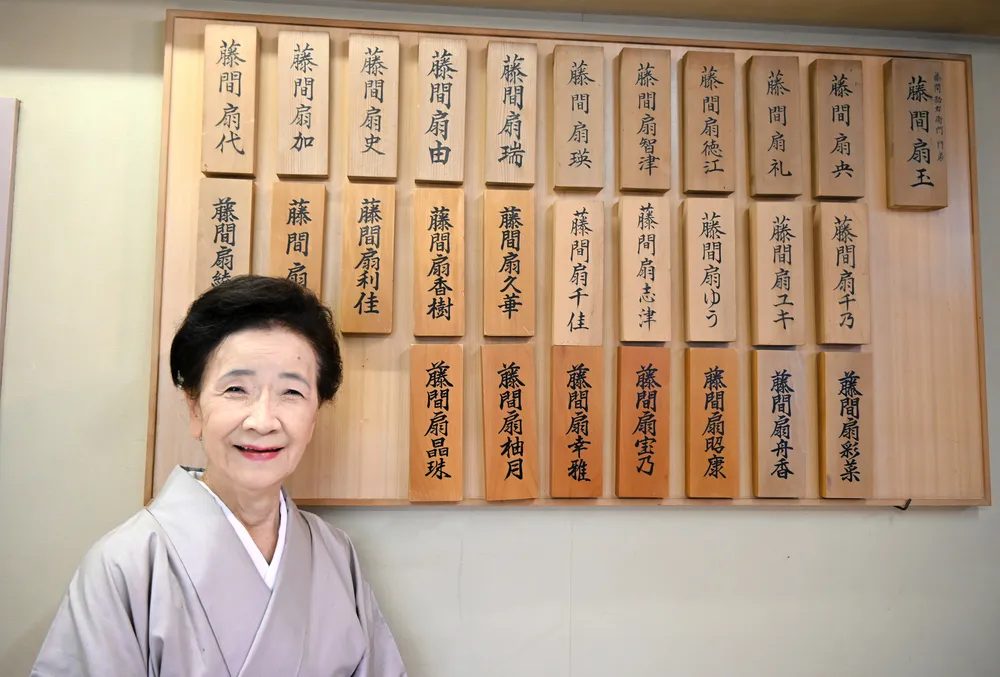 藤間勘右衛門 門弟
藤間扇玉
藤間扇央
藤間扇礼
藤間扇徳江
藤間扇智津
藤間扇瑛
藤間扇瑞
藤間扇由
藤間扇史
藤間扇加
藤間扇代
藤間扇千乃
藤間扇ユキ
藤間扇ゆう
藤間扇志津
藤間扇千佳
藤間扇久華
藤間扇香樹
藤間扇利佳
藤間扇
藤間扇
藤間扇彩菜
藤間扇舟香
藤間扇昭康
藤間扇宝乃
藤間扇幸雅
藤間扇柚月
藤間扇晶珠